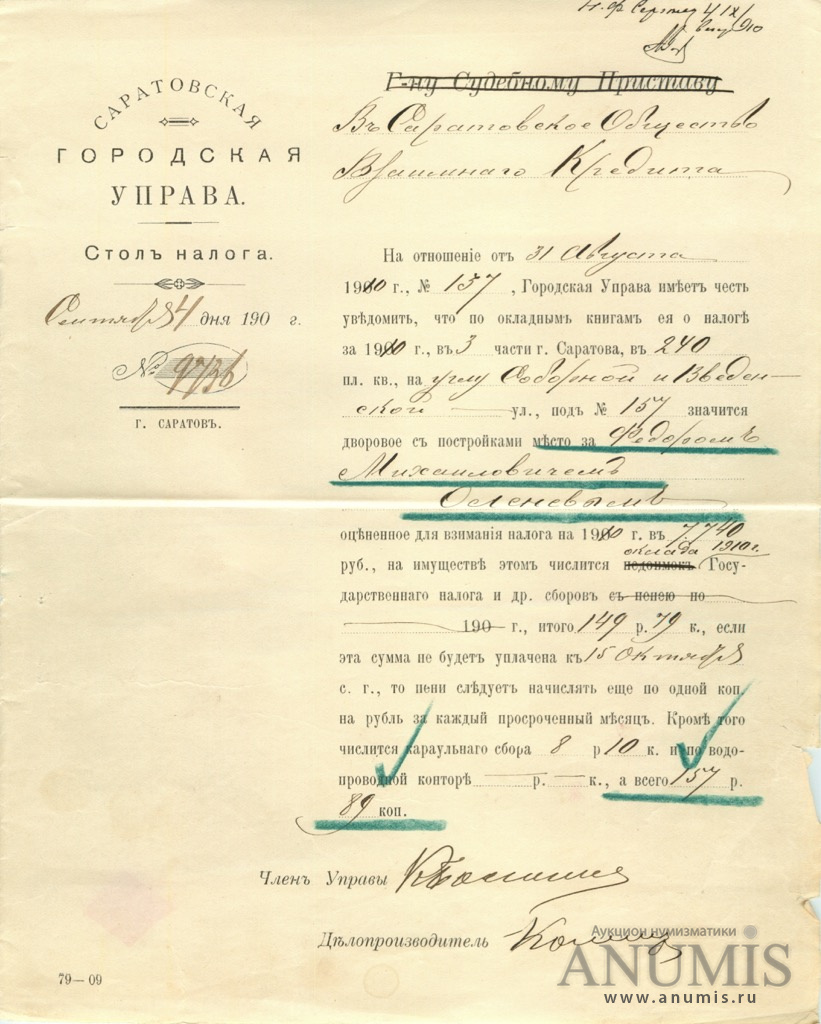 4/IX
САРАТОВСКАЯ
ГОРОДСКАЯ
УПРАВА.
Столъ налога.
Сентября 4 дня 190 г.
№ 9736
Г. САРАТОВЪ.
Г-ну Судебному Приставу
Въ Саратовское Общество
Взаимнаго Кредита
На отношеніе отъ 31 Августа
1910 г., № 157, Городская Управа имѣетъ честь
увѣдомить, что по окладнымъ книгамъ ея о налогѣ
за 1910 г., въ 3 части г. Саратова, въ 240
пл. кв., на углу Соборной и Введен-
ской ул., подъ № 157 значится
дворовое съ постройками мѣсто за Федоромъ
Михаиловичемъ
Оленевымъ
оцѣненное для взиманія налога на 1910 г. въ 7.740
руб., на имуществѣ этомъ числится недоимокъ оклада 1910 г. Госу-
дарственнаго налога и др. сборовъ съ пенею по
190 г., итого 149 р. 79 к., если
эта сумма не будетъ уплачена къ 15 Октября
с. г., то пени слѣдуетъ начислять еще по одной коп.
на рубль за каждый просроченный мѣсяцъ. Кромѣ того
числится караульнаго сбора 8 р 10 к. и по водо-
проводной конторѣ — р. — к., а всего 157 р.
89 коп.
Членъ Управы
Дѣлопроизводитель
79—09
Аукцион нумизматики
ANUMIS
www.anumis.ru